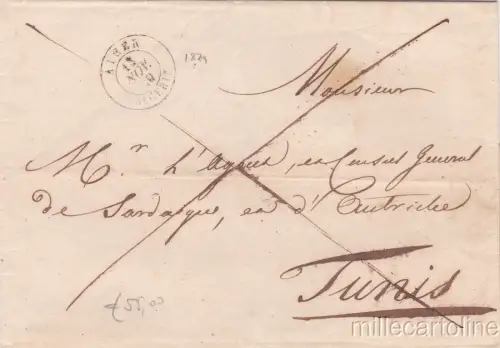 ALGER
18
NOV.
ALGERIE
Monsieur
M.r L'Agnus, en Consul General
de Sardaigne, en d'Autriche
Tunis
55,00
millecartoline